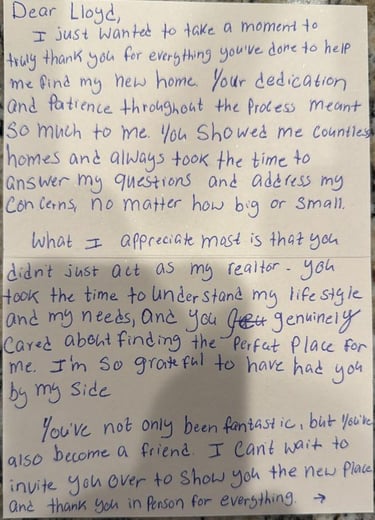 Dear Lloyd,
I just wanted to take a moment to
truly thank you for everything you've done to help
me find my new home. Your dedication
and Patience throughout the Process meant
So much to me. You Showed me Countless
homes and always took the time to
answer my questions and address my
Concerns, no matter how big or Small.
What I appreciate most is that you
didn't just act as my realtor - you
took the time to understand my lifestyle
and my needs, and you genuinely
Cared about finding the Perfect Place for
me. I'm So grateful to have had you
by my Side
You've not only been fantastic, but You've
also become a friend. I Can't wait to
invite you over to Show you the new Place
and thank you in Person for everything. →